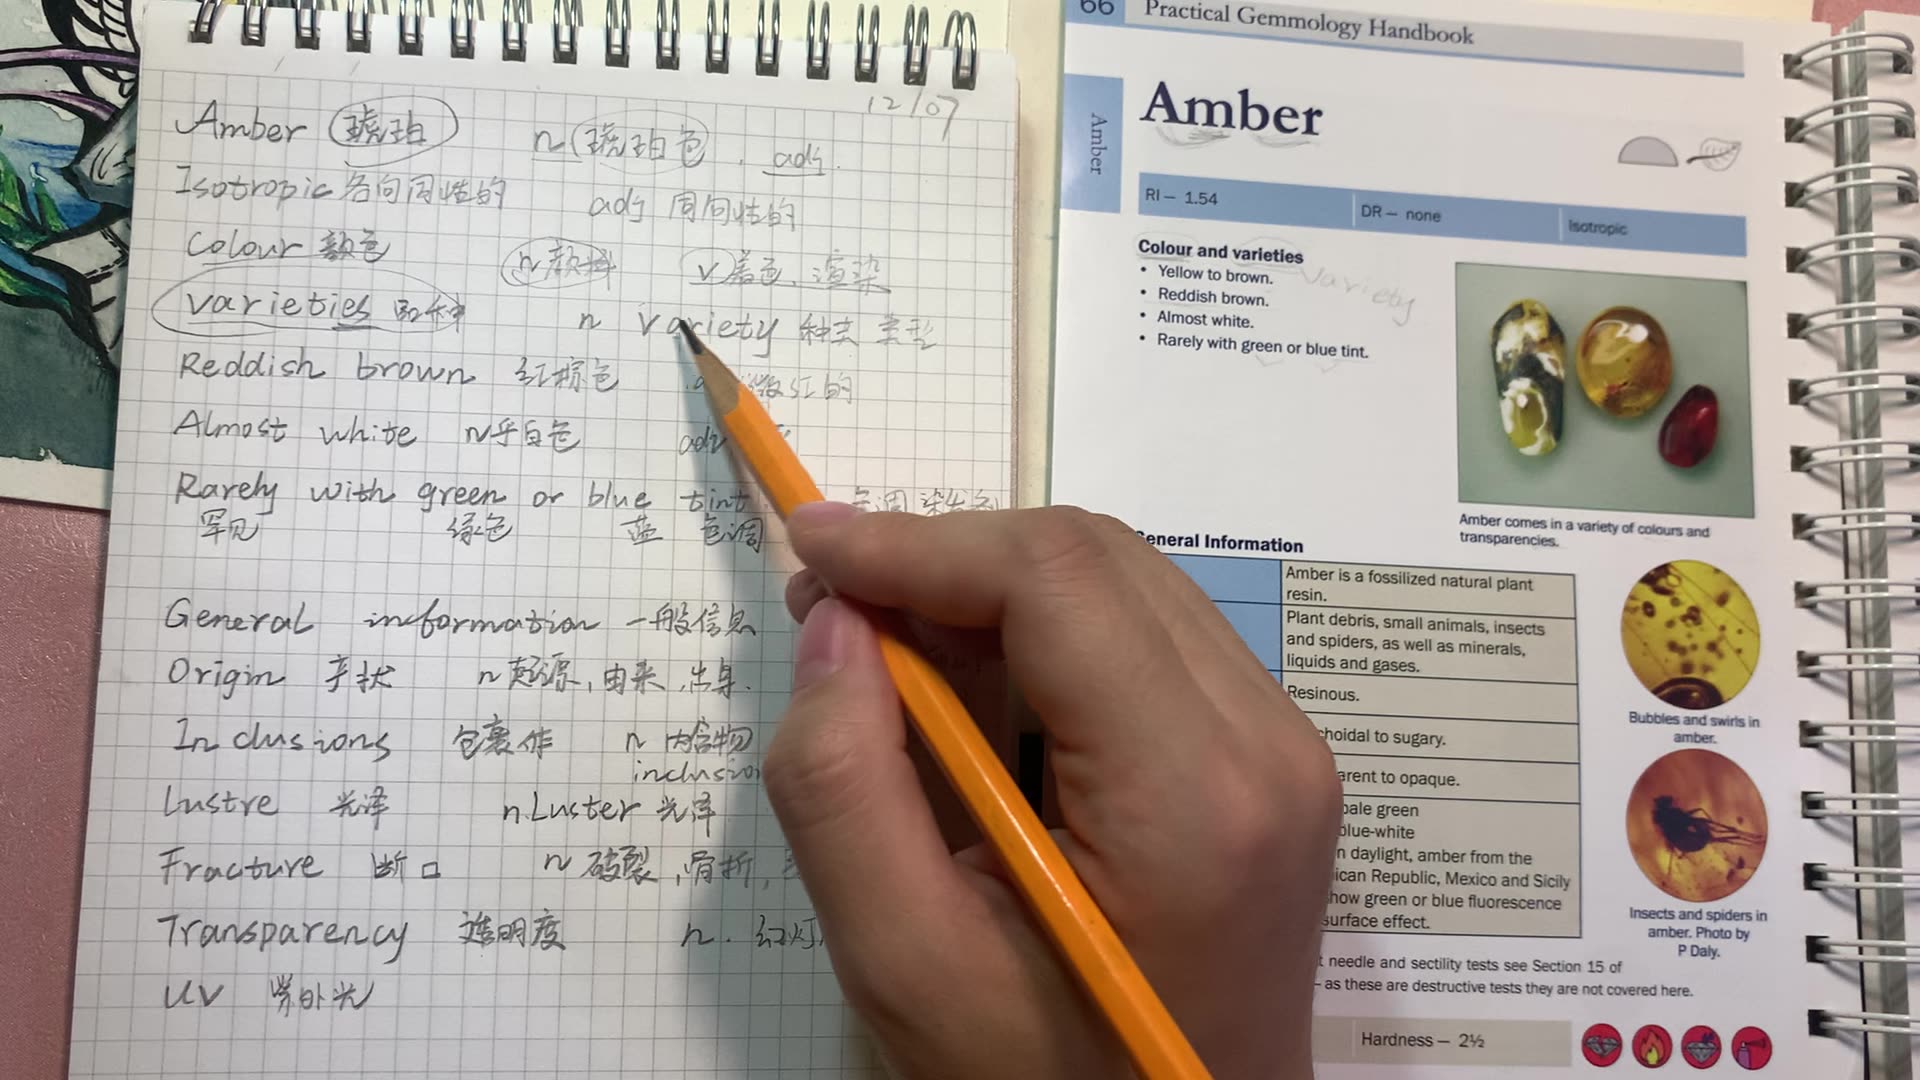 12/07
Amber 琥珀 n 琥珀色. adj.
Isotropic 各向同性的 adj 周向性的
Colour 颜色 n 颜料 v 着色、渲染
varieties n variety 种类 类型
Reddish brown 红棕色 微红的
Almost white 乎白色 adv
Rarely with green or blue tint
罕见 绿色 蓝 色调
General information 一般信息
Origin 产状 n 起源, 由来, 出身.
Inclusions 包裹体 n 内含物
inclusion
Lustre 光泽 n. Luster 光泽
Fracture 断口 n 破裂, 骨折,
Transparency 透明度 n. 幻灯
UV 紫外光
66 Practical Gemmology Handbook
Amber
Amber
RI — 1.54 DR — none Isotropic
Colour and varieties
• Yellow to brown.
variety
• Reddish brown.
• Almost white.
• Rarely with green or blue tint.
Amber comes in a variety of colours and
transparencies.
General Information
Amber is a fossilized natural plant
resin.
Plant debris, small animals, insects
and spiders, as well as minerals,
liquids and gases.
Resinous.
choidal to sugary.
arent to opaque.
pale green
blue-white
n daylight, amber from the
ican Republic, Mexico and Sicily
how green or blue fluorescence
surface effect.
Bubbles and swirls in
amber.
Insects and spiders in
amber. Photo by
P Daly.
t needle and sectility tests see Section 15 of
– as these are destructive tests they are not covered here.
Hardness — 2½